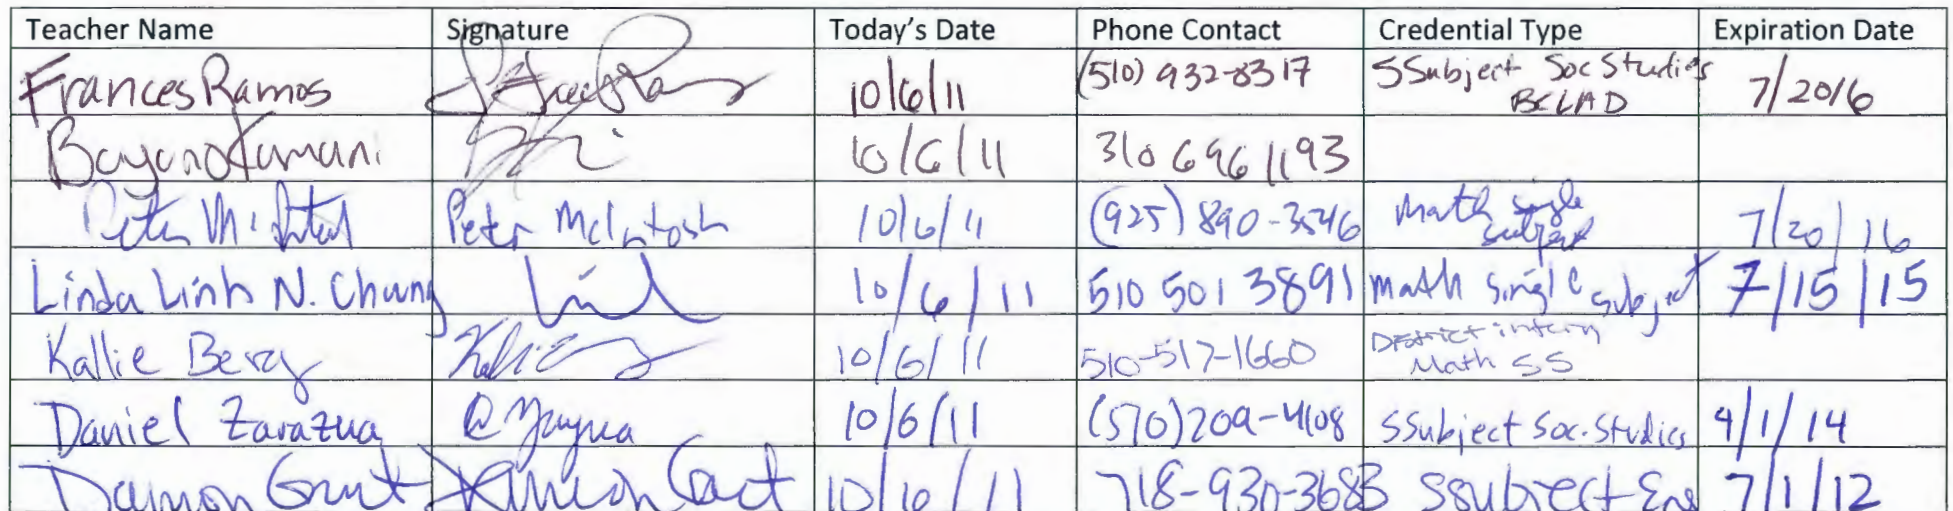 Teacher Name Signature Today's Date Phone Contact Credential Type Expiration Date
Frances Ramos 10/6/11 (510) 932-8317 SSubject Soc Studies BCLAD 7/2016
10/6/11 310 696 1193
Peter McIntosh Peter McIntosh 10/6/11 (925) 890-3546 Math single subject 7/20/16
Linda Linh N. Chung 10/6/11 510 501 3891 math single subject 7/15/15
Kallie Berg 10/6/11 510-517-1660 District intern Math SS
Daniel Zarazua 10/6/11 (510)209-4108 SSubject Soc. Studies 4/1/14
Damon Grant Damon Grant 10/6/11 718-930-3683 SSubject Eng 7/1/12